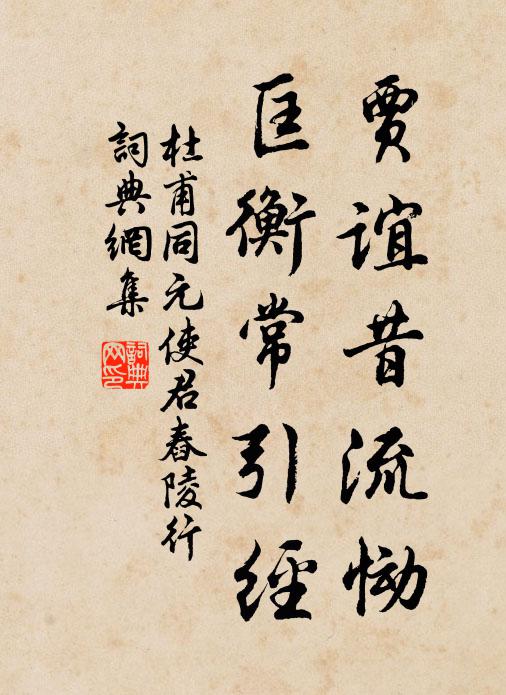 賈誼昔流慟
匡衡常引經
杜甫同元使君舂陵行
詞典網集
詞典網印